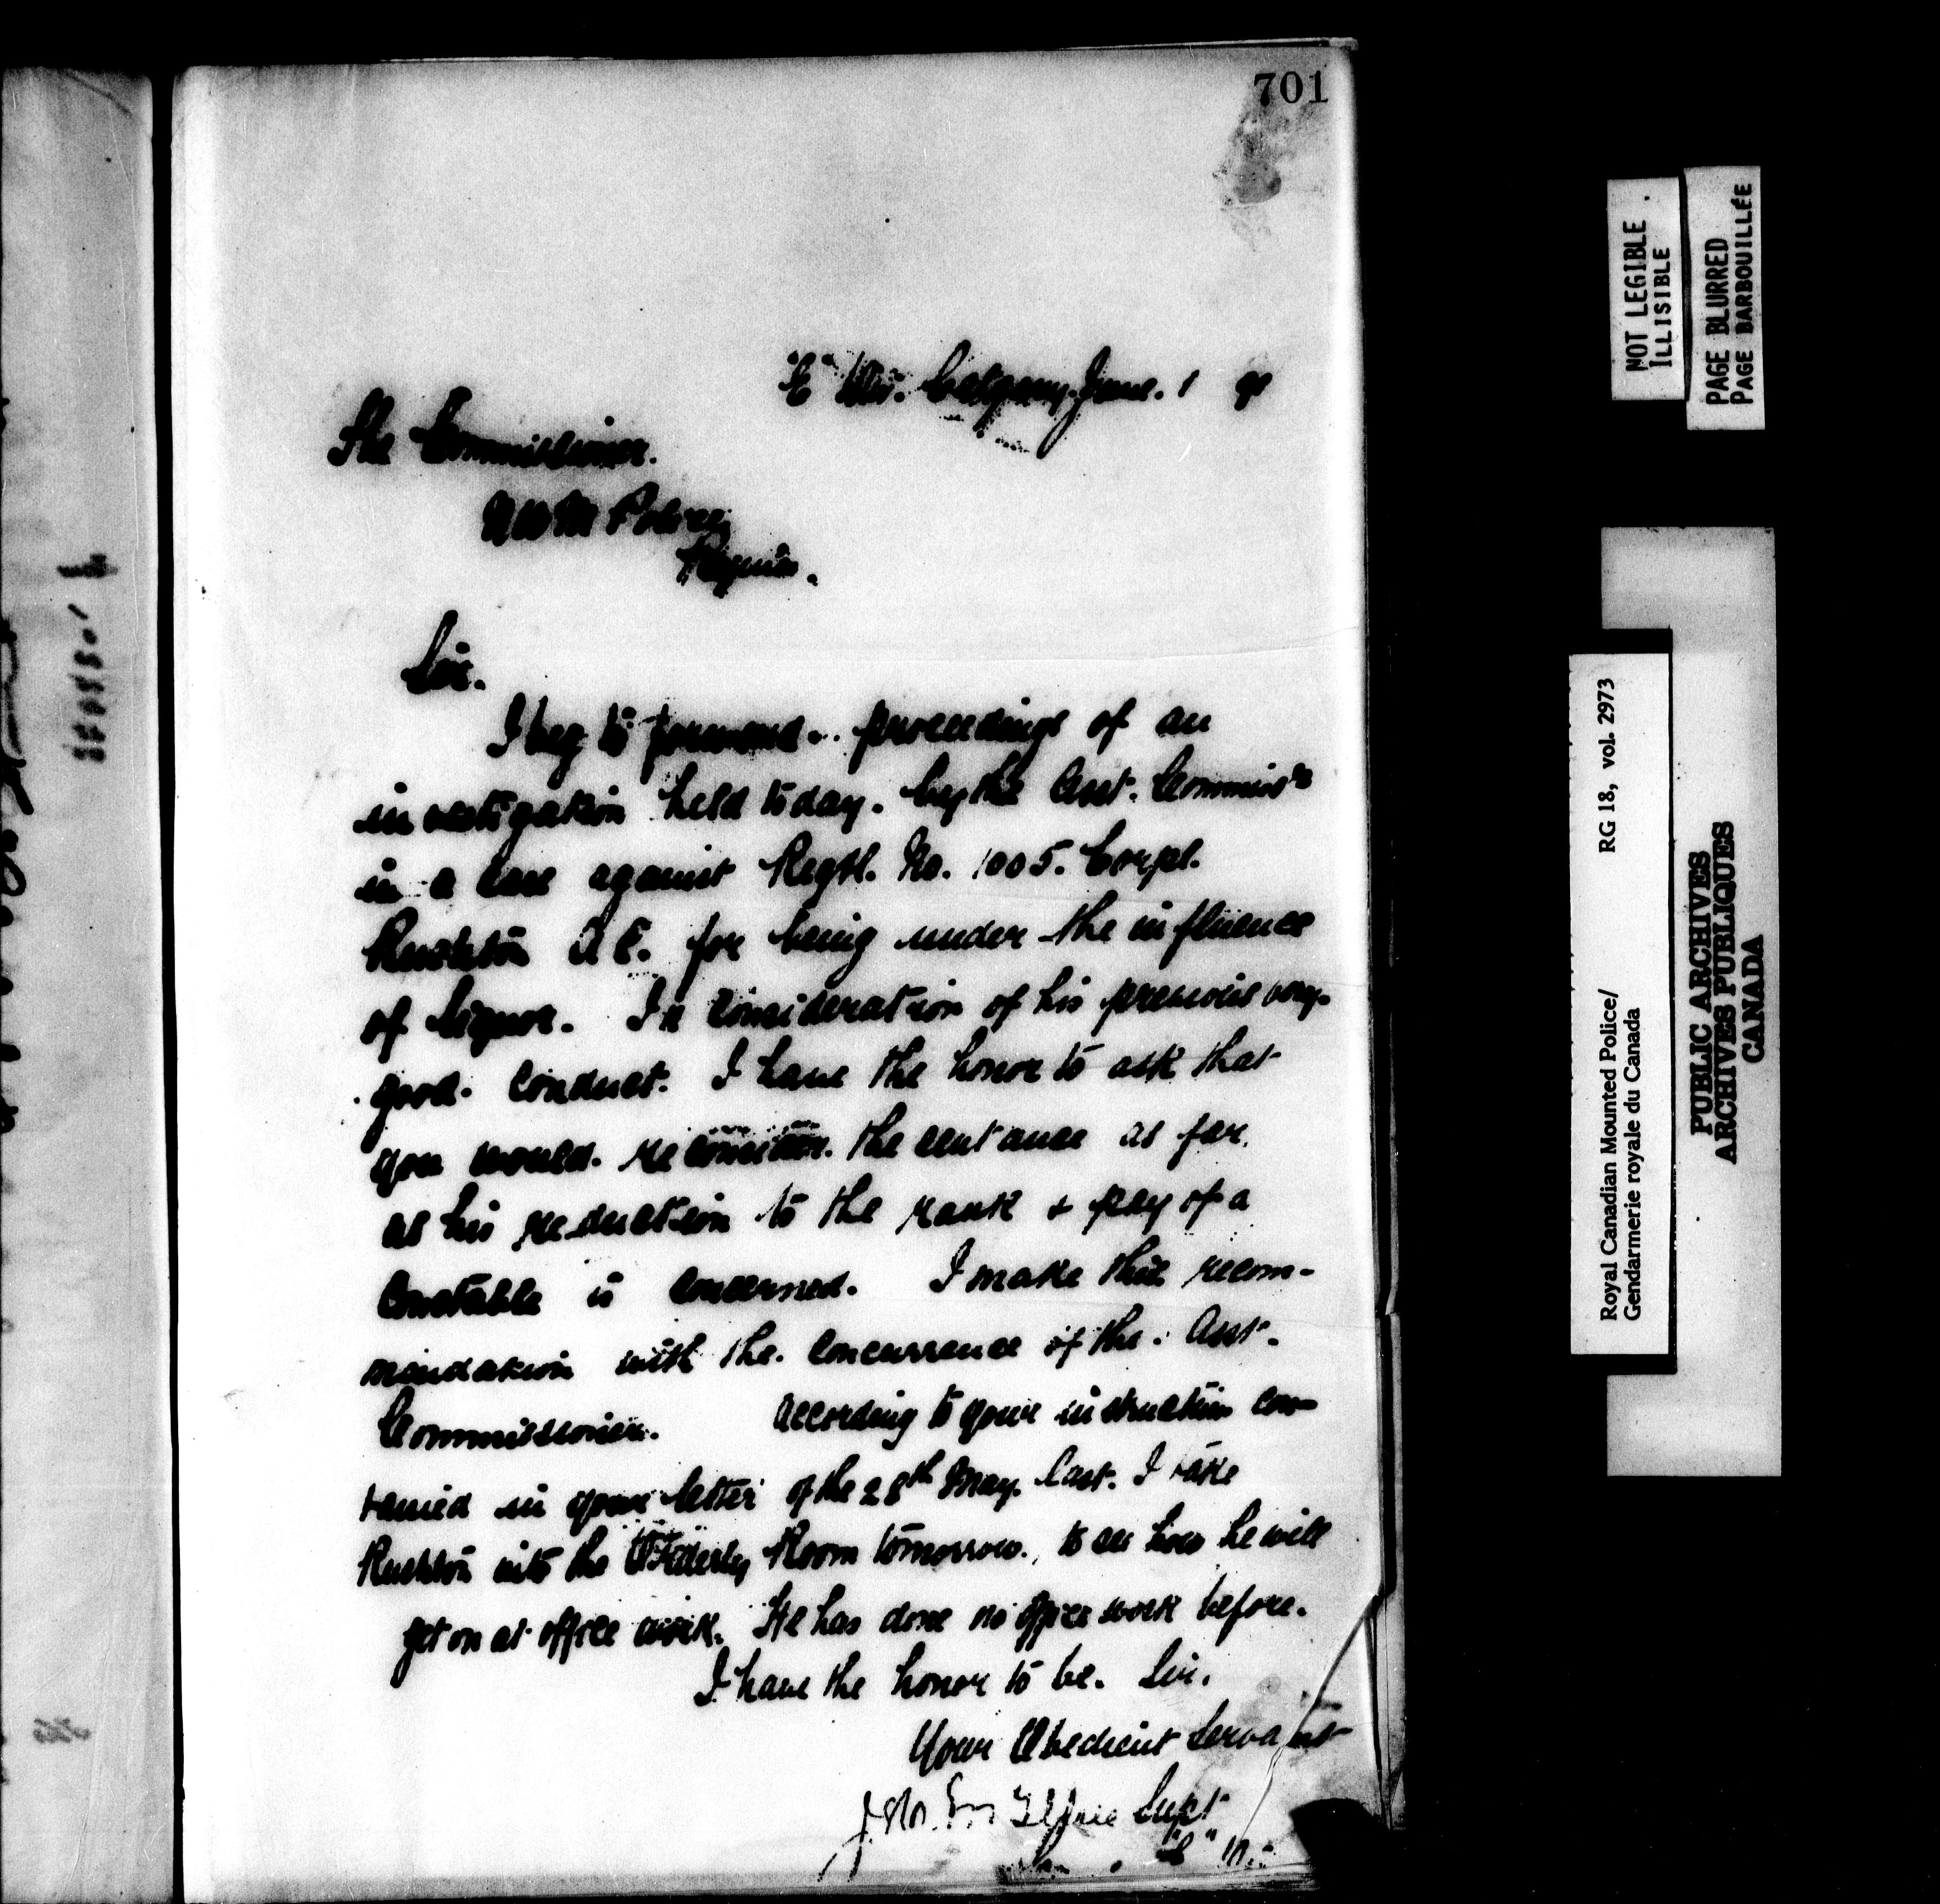 701
"E" Div. Calgary. June. 1
The Commissioner.
N W M Police,
Regina.
Sir.
I beg to forward. proceedings of an
investigation held today. by the Asst. Commiss'r
in a case against Regtl. No. 1005. Corpl.
Rushton A E. for being under the influence
of liquor. In consideration of his previous very
good. conduct. I have the honor to ask that
you would. reconsider. the sentance as far
as his reduction to the rank & pay of a
Constable is concerned. I make this recom-
mendation with the. concurrence of the. Asst.
Commissioner. According to your instruction con
tained in your letter of the 28th May. last. I take
Rushton into the Orderly Room tomorrow., to see how he will
get on at office work. He has done no office work before.
I have the honor to be. Sir.
Your Obedient Servant
Supt
NOT LEGIBLE
ILLISIBLE
PAGE BLURRED
PAGE BARBOUILLÉE
Royal Canadian Mounted Police/ RG 18, vol. 2973
Gendarmerie royale du Canada
PUBLIC ARCHIVES
ARCHIVES PUBLIQUES
CANADA